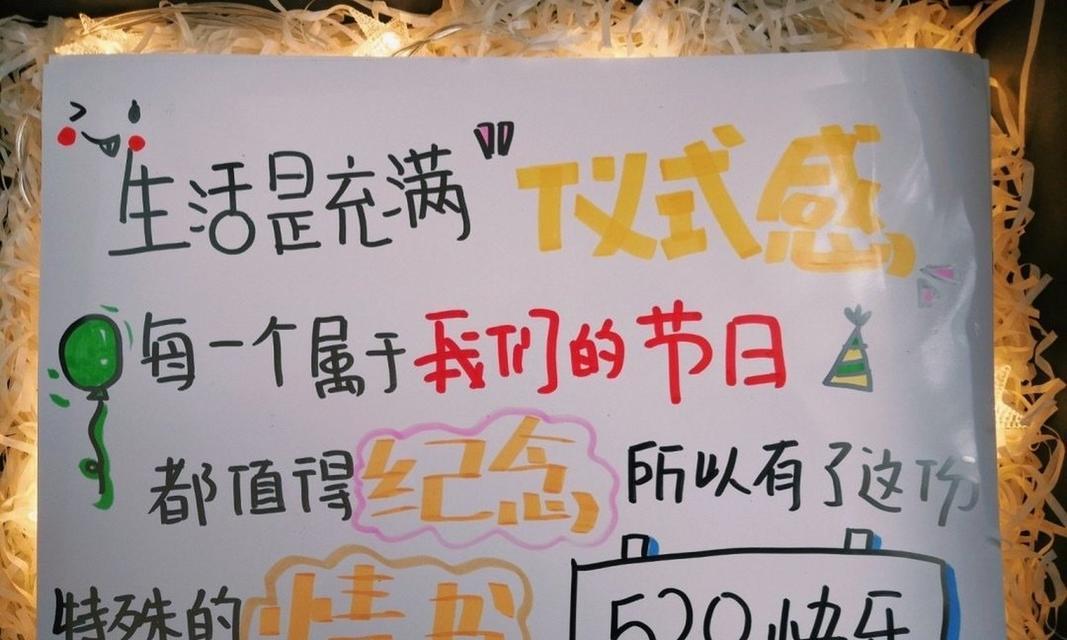 生活是充满"仪式感
每一个属于我们的节日
都值得纪念所以有了这份
特殊的情书
520快乐